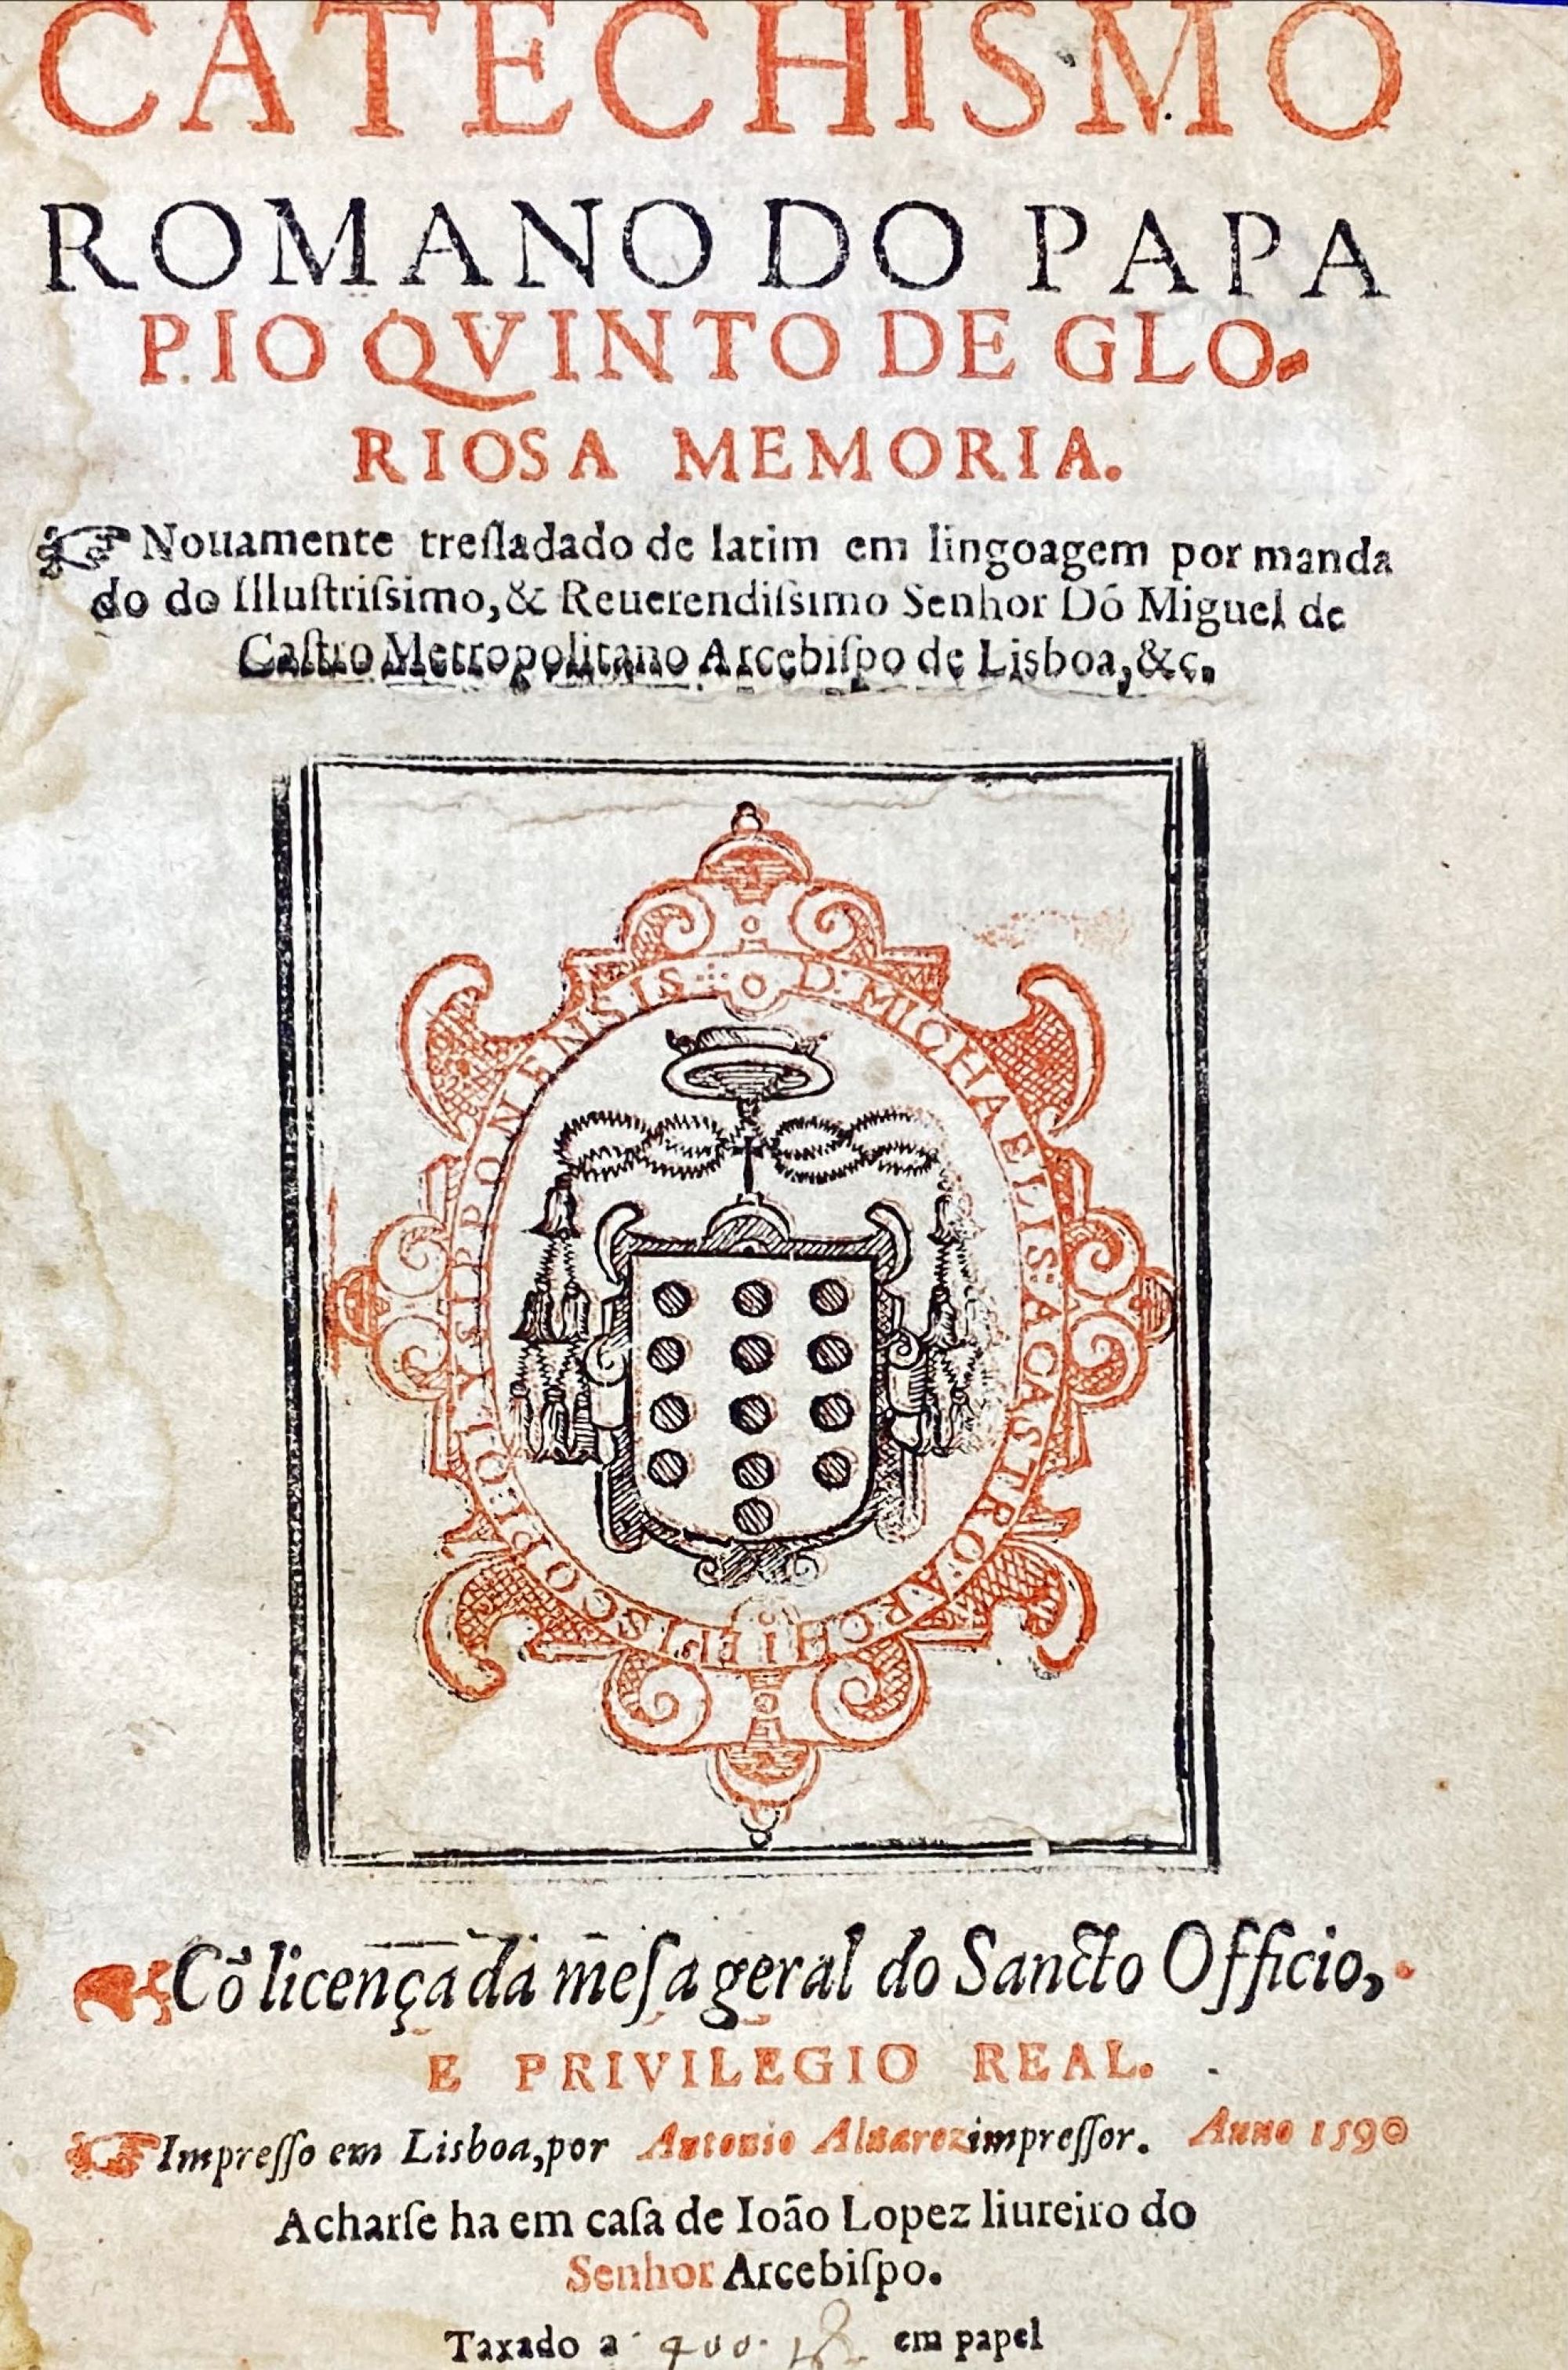 CATECHISMO
ROMANO DO PAPA
PIO QVINTO DE GLO-
RIOSA MEMORIA.
Nouamente treſladado de latim em lingoagem por manda
do do Illuſtriſsimo, & Reuerendiſsimo Senhor Dõ Miguel de
Caſtro Metropolitano Arcebiſpo de Lisboa, &c.
D. MICHAELIS: A CASTRO ARCHIEPISCOPI EOLYSIPPONENSIS
Cõ licença da meſa geral do Sancto Officio,
E PRIVILEGIO REAL.
Impreſſo em Lisboa, por Antonio Aluarez impreſſor. Anno 1590
Acharſe ha em caſa de Ioão Lopez liureiro do
Senhor Arcebiſpo.
Taxado a 400. em papel